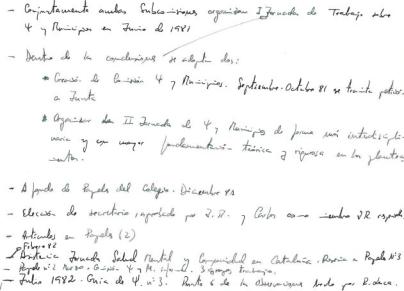 - Conjuntamente ambas Subcomisiones organizan I Jornada de Trabajo sobre
Ψ y Municipios en Junio de 1981
- Dentro de las conclusiones se adoptan dos:
* Creación de Comisión Ψ y Municipios. Septiembre-Octubre 81 se tramita petición
a Junta
* Organizar las II Jornada de Ψ y Municipios de forma más interdiscipli-
naria y con mayor fundamentación teórica y rigurosa en los plantea-
mientos.
- Apartado de Papeles del Colegio. Diciembre 81
- Elección de secretario, aprobado por J.R. y Carlos como miembro J.R.
- Artículos en Papeles (2)
Febrero 82
Asistencia Jornada Salud Mental y Comunidad en Cataluña. Reseña a Papeles Nº3
- Papeles nº 2 Marzo. Guía Ψ y M. 3 grupos trabajo.
- Julio 1982. Guía de Ψ. nº 3. Punto 6 de las observaciones hecho por R.